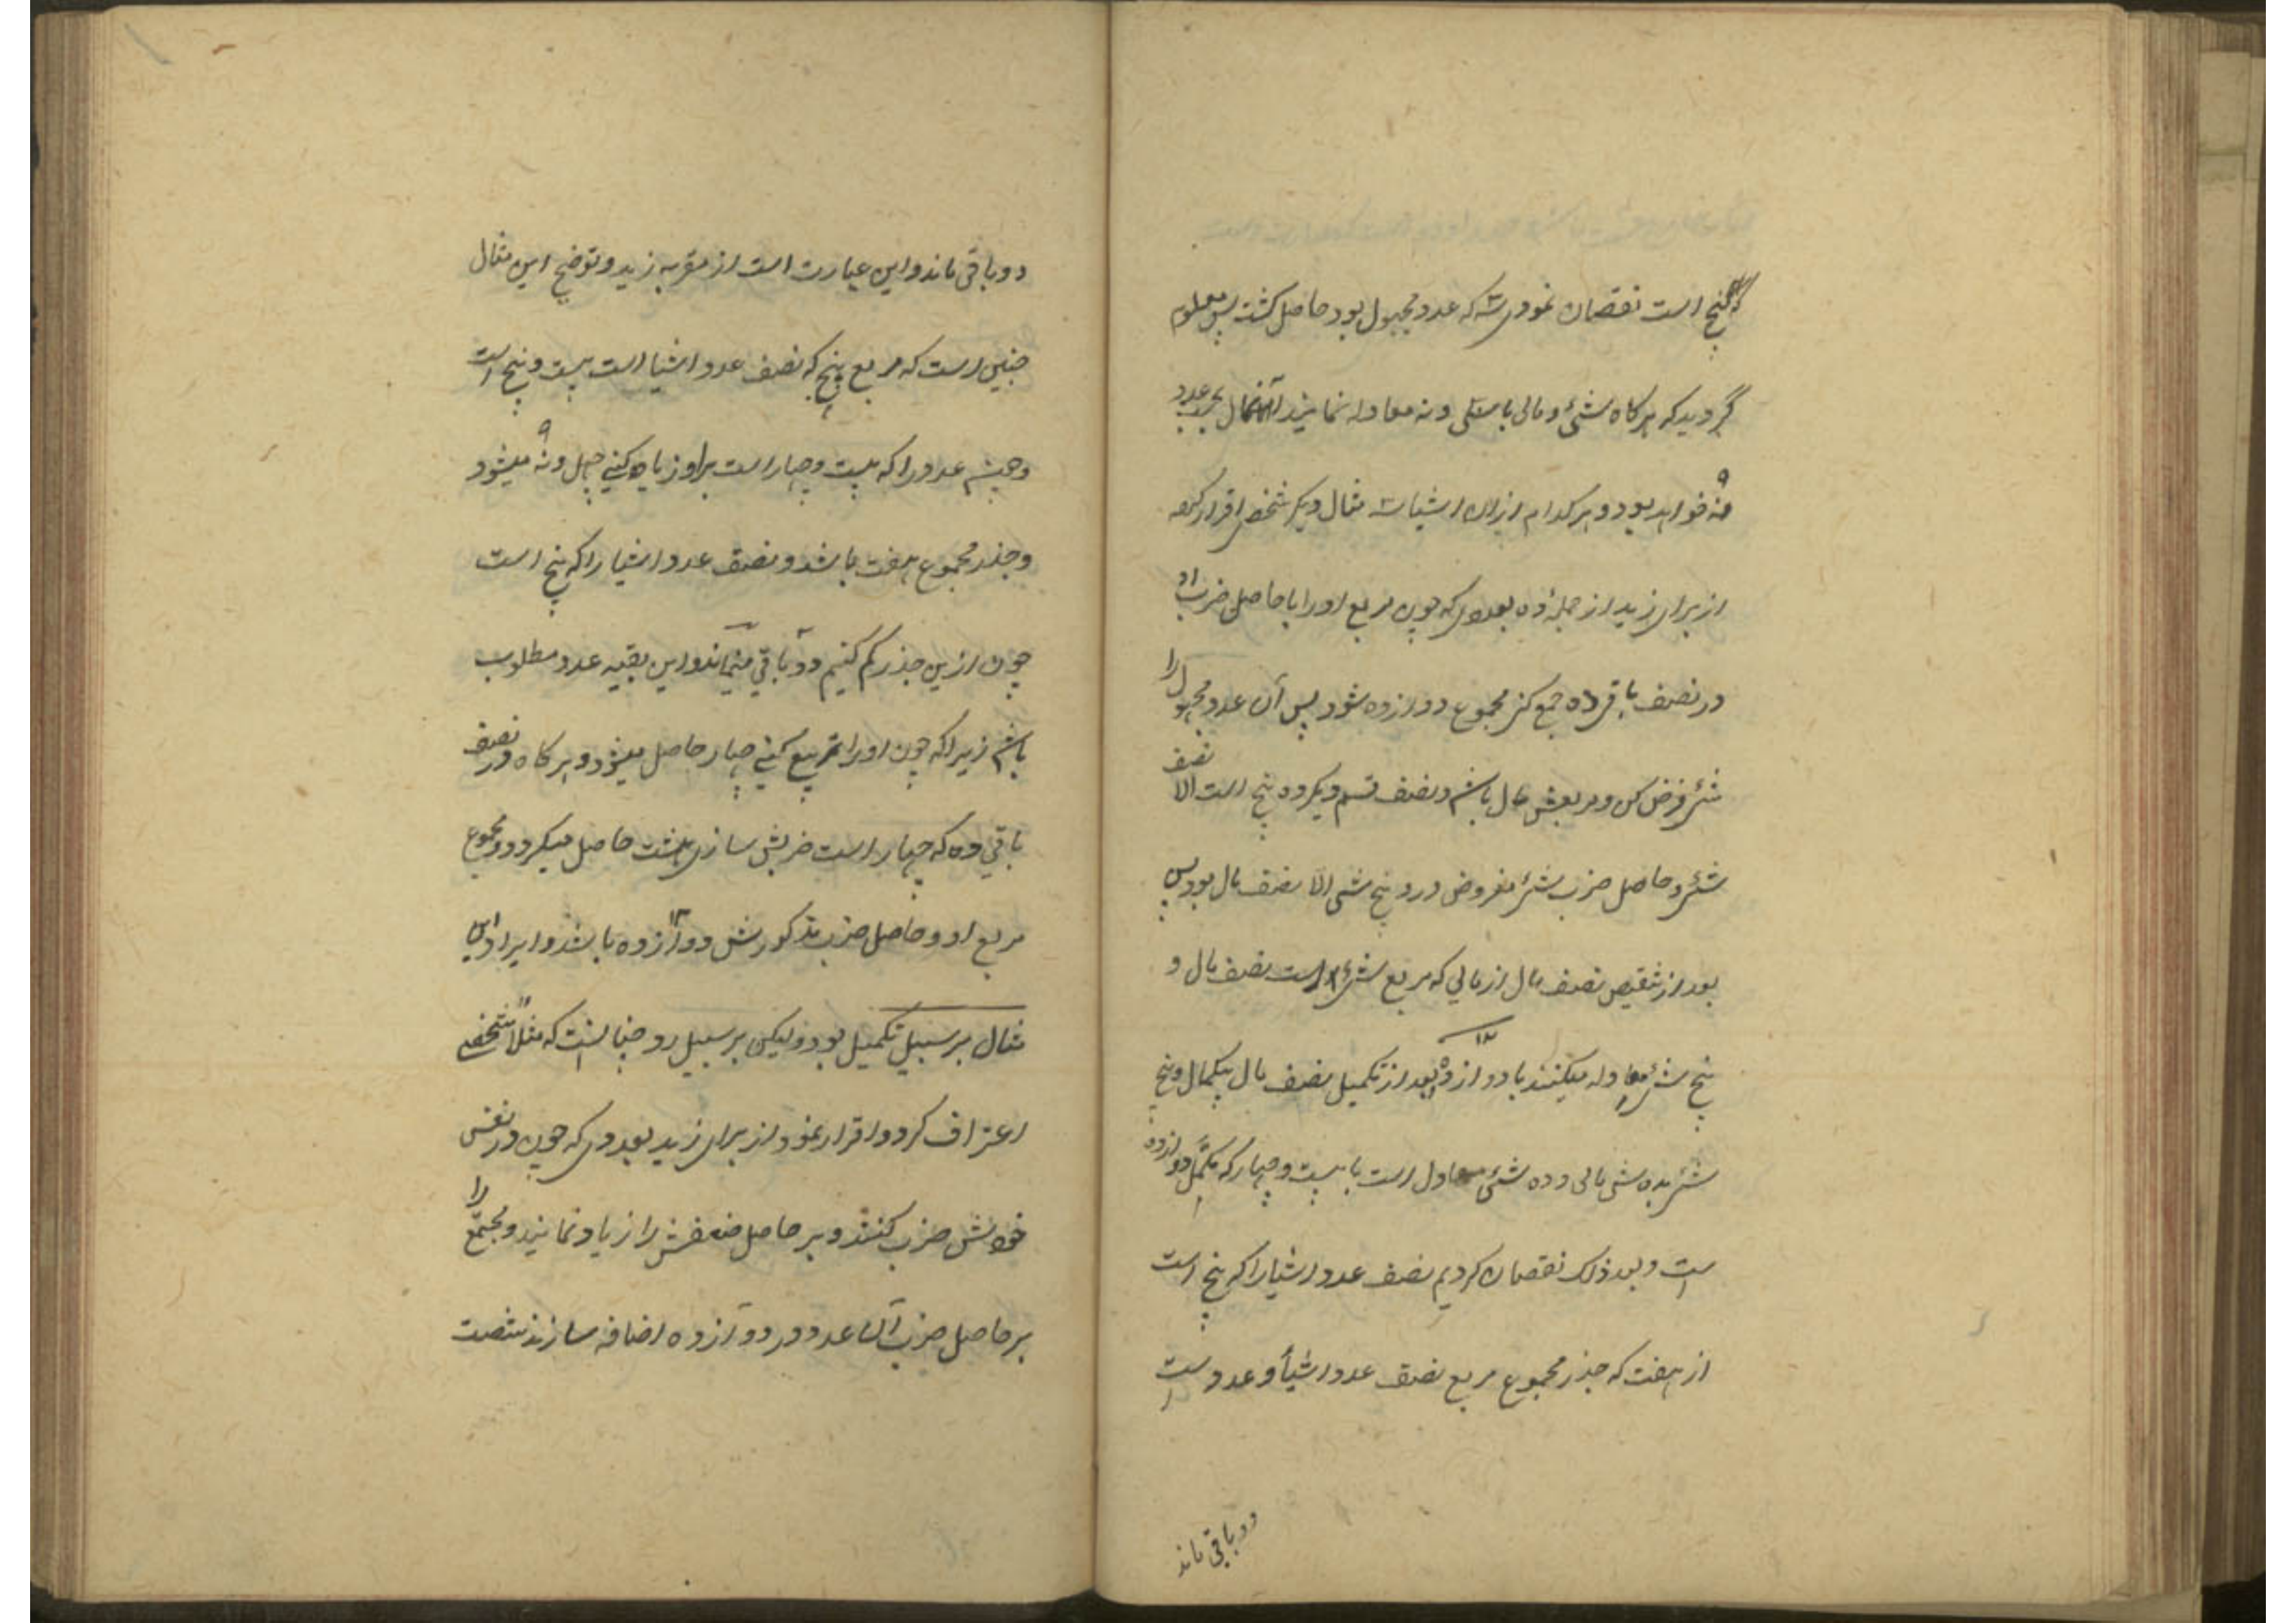 که پنج است نقصان نمودی سه که عدد مجهول بود حاصل کشت پس معلوم
گردید که هرکاه شئ و مالی با سی ونه معادله نمایند آنمال بحسب عدد
نه خواهد بود و هر کدام ازان اشیا سه مثال دیگر شخصی اقرار کرد
از برای زید از جملهٔ ده بعددی که چون مربع اورا با حاصل ضرب او
در نصف باقی ده جمع کنی مجموع دوازده شود پس آن عدد مجهول را
شئ فرض کن و مربعش مال باشد و نصف قسم دیکر ده پنج است الا نصف
شئ و حاصل ضرب شئ مفروض درو پنج شی الا نصف مال بود پس
بعد از تنقیص نصف مال از مالی که مربع شئ است نصف مال و
پنج شئ معادله میکنند با دوازده ۱۲ بعد از تکمیل نصف مال بیکمال و پنج
شئ بده شی مالی و ده شئ معادل است با بیست و چهار که مکمل دوازده
است و بعد ذلک نقصان کردیم نصف عدد اشیا را که پنج است
از هفت که جذر مجموع مربع نصف عدد اشیأ و عدد است
دو باقی ماند
دو باقی ماند و این عبارت است از مقر به زید و توضیح این مثال
چنین است که مربع پنج که نصف عدد اشیا است بیست و پنج است
وچون عدد را که بیست و چهار است براو زیاده کنی چهل ونه ۹ میشود
و جذر مجموع هفت باشد و نصف عدد اشیا را که پنج است
چون ازین جذر کم کنیم دو باقی میماند و این بقیه عدد مطلوب
باشد زیراکه چون اورا تربیع کنی چهار حاصل میشود و هرکاه در نصف
باقی ده که چهار است ضربش سازی هشت حاصل میکردد و مجموع
مربع او و حاصل ضرب مذکورش دوازده ۱۲ باشد و ایراد این
مثال بر سبیل تکمیل بود ولیکن بر سبیل رد چنانست که مثلاً شخصی
اعتراف کرد و اقرار نمود از برای زید بعددی که چون در نفس
خودش ضرب کنند و بر حاصل ضعفش را زیاد نمایند و مجتمع را
بر حاصل ضرب آن عدد در دوازده اضافه سازند شصت